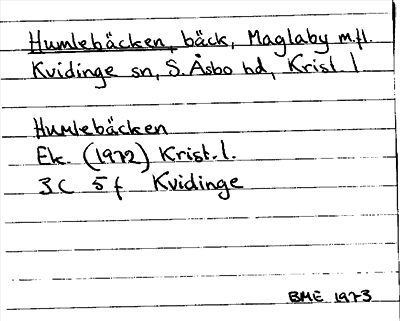 Humlebäcken, bäck, Maglaby m.fl.
Kvidinge sn, S. Åsbo hd, Krist. l
Humlebäcken
Ek. (1972) Krist. l.
3C 5f Kvidinge
BME 1973